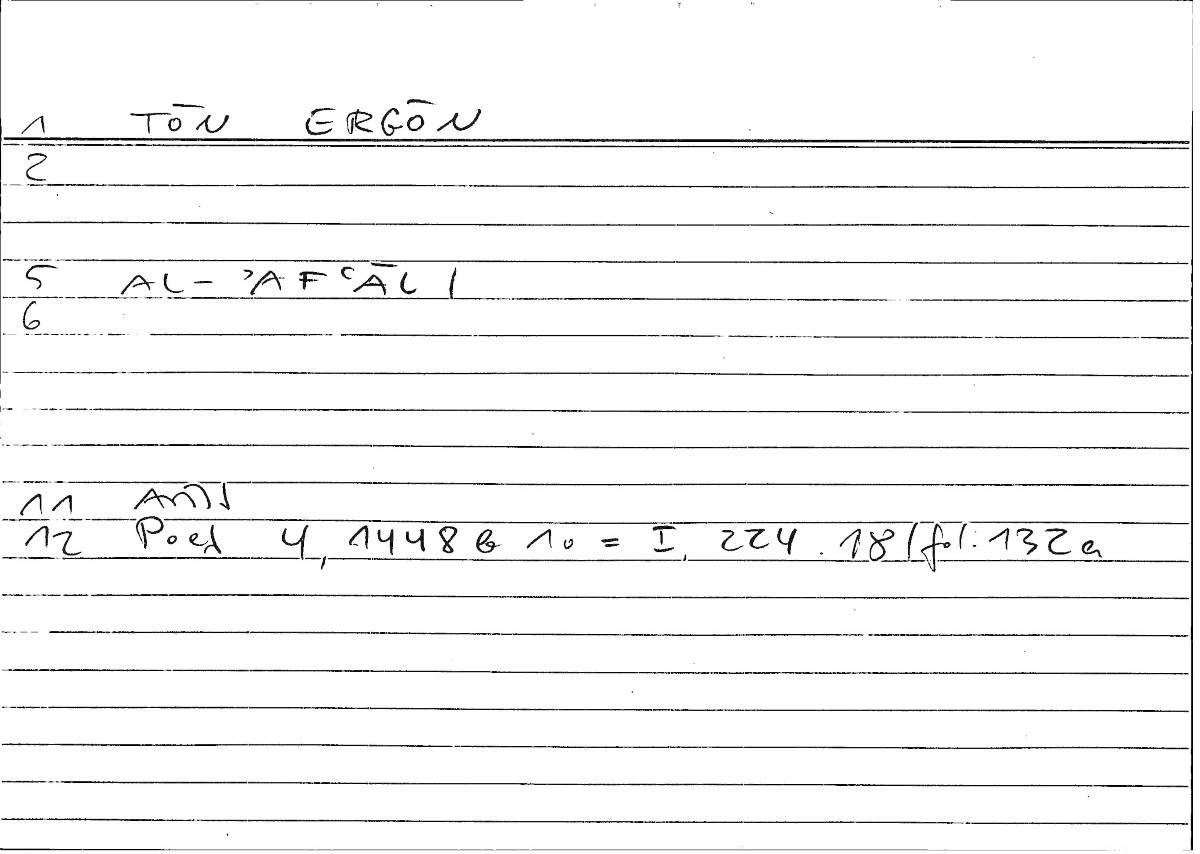 1 TŌN ERGŌN
2
5 AL-ʾAFʿĀL /
6
11
12 Poet 4, 1448 b 10 = I, 224.18 / fol. 132a